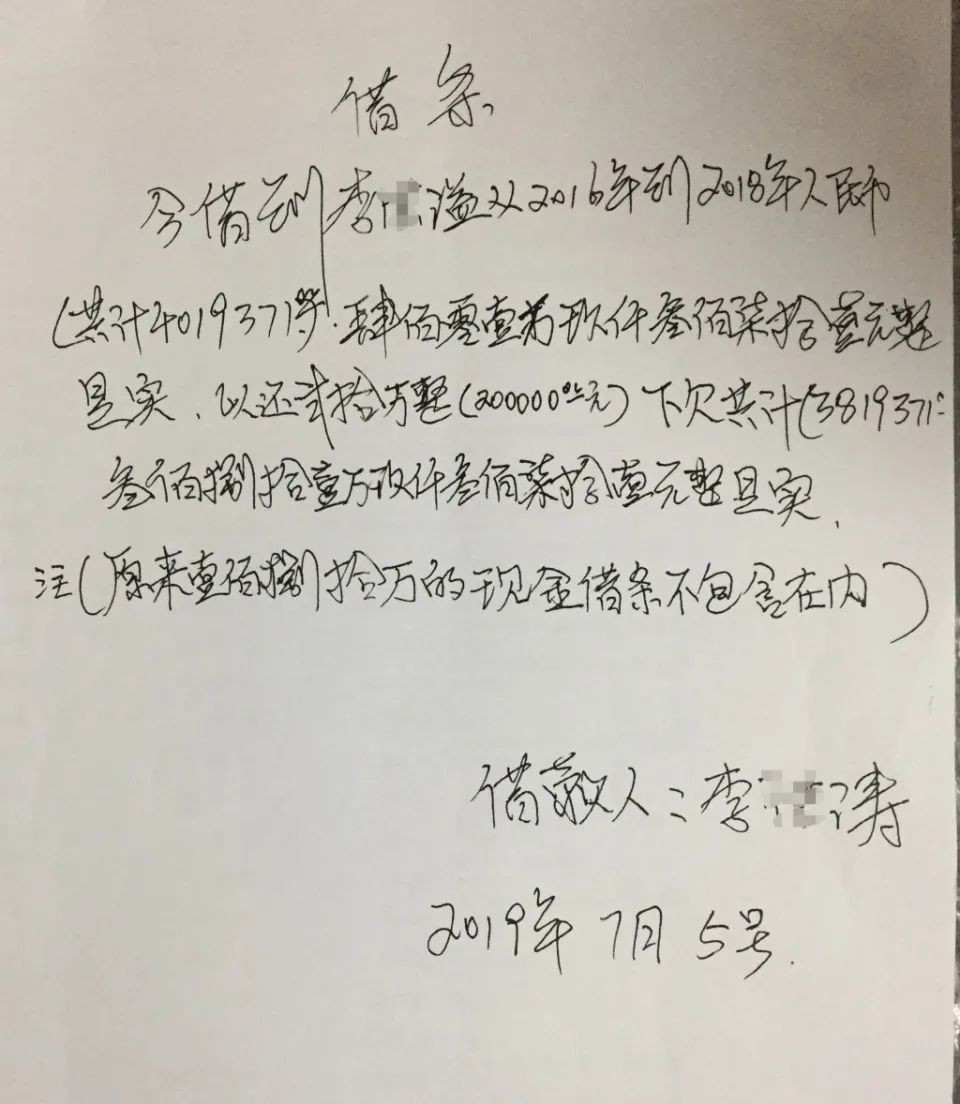 借条
今借到李溢从2016年到2018年人民币
(共计4019371.00 肆佰零壹万玖仟叁佰柒拾壹元整
是实、以还贰拾万整(200000.00元)下欠共计(3819371:
叁佰捌拾壹万玖仟叁佰柒拾壹元整是实.
注(原来壹佰捌拾万的现金借条不包含在内)
借款人:李涛
2019年7月5号.